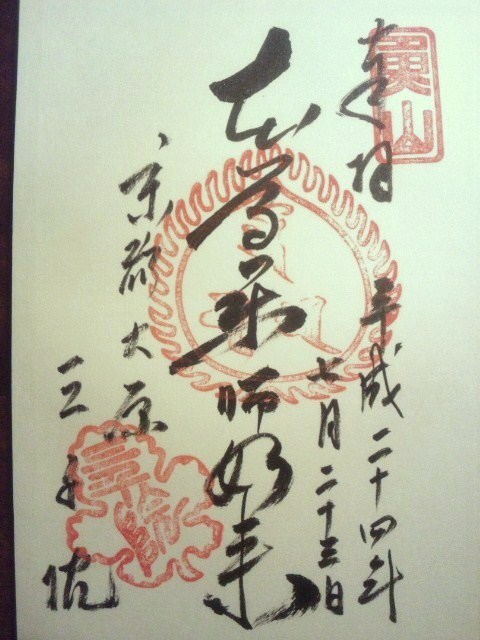 魚山
奉拝
平成二十四年
七月二十三日
本尊薬師如来
京都大原
三千院